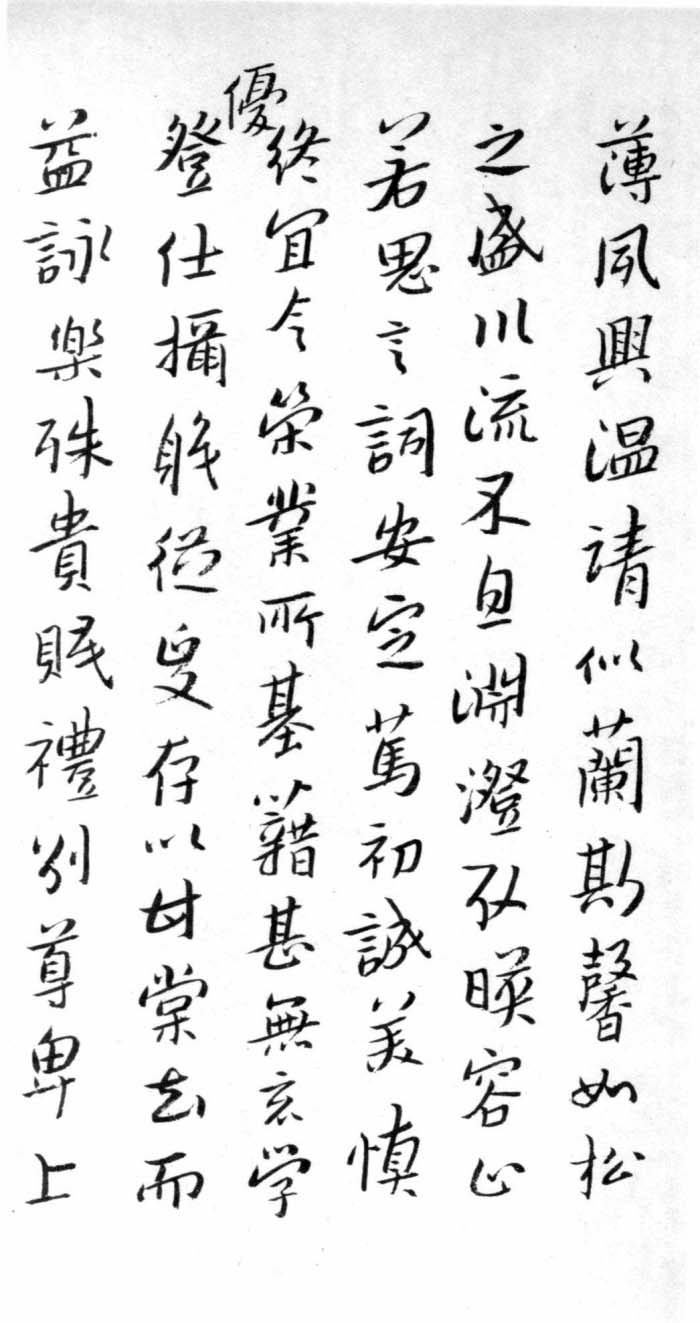 薄夙興温清似蘭斯馨如松
之盛川流不息淵澄取暎容止
若思言詞安定篤初誠美慎
終宜令榮業所基籍甚無竟学
優
登仕攝職從政存以甘棠去而
益詠樂殊貴賤禮別尊卑上